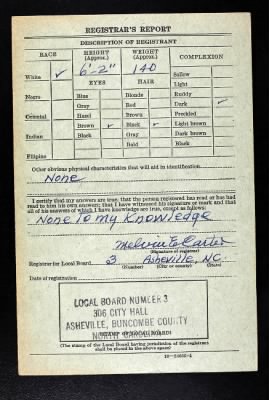 REGISTRAR'S REPORT
DESCRIPTION OF REGISTRANT
RACE HEIGHT (Approx.) WEIGHT (Approx.) COMPLEXION
6'-2" 140
White ✓ Sallow
EYES HAIR Light
Negro Blue Blonde Ruddy
Gray Red Dark ✓
Oriental Hazel Brown Freckled
Brown ✓ Black ✓ Light brown
Indian Black Gray Dark brown
Bald Black
Filipino
Other obvious physical characteristics that will aid in identification
None
I certify that my answers are true; that the person registered has read or has had
read to him his own answers; that I have witnessed his signature or mark and that
all of his answers of which I have knowledge are true, except as follows:
None To my Knowledge
Melvin E. Carter
(Signature of registrar)
Registrar for Local Board 3 Asheville, N.C.
(Number) (City or county) (State)
Date of registration
LOCAL BOARD NUMBER 3
306 CITY HALL
ASHEVILLE, BUNCOMBE COUNTY
NORTH CAROLINA
(STAMP OF LOCAL BOARD)
(The stamp of the Local Board having jurisdiction of the registrant
shall be placed in the above space)